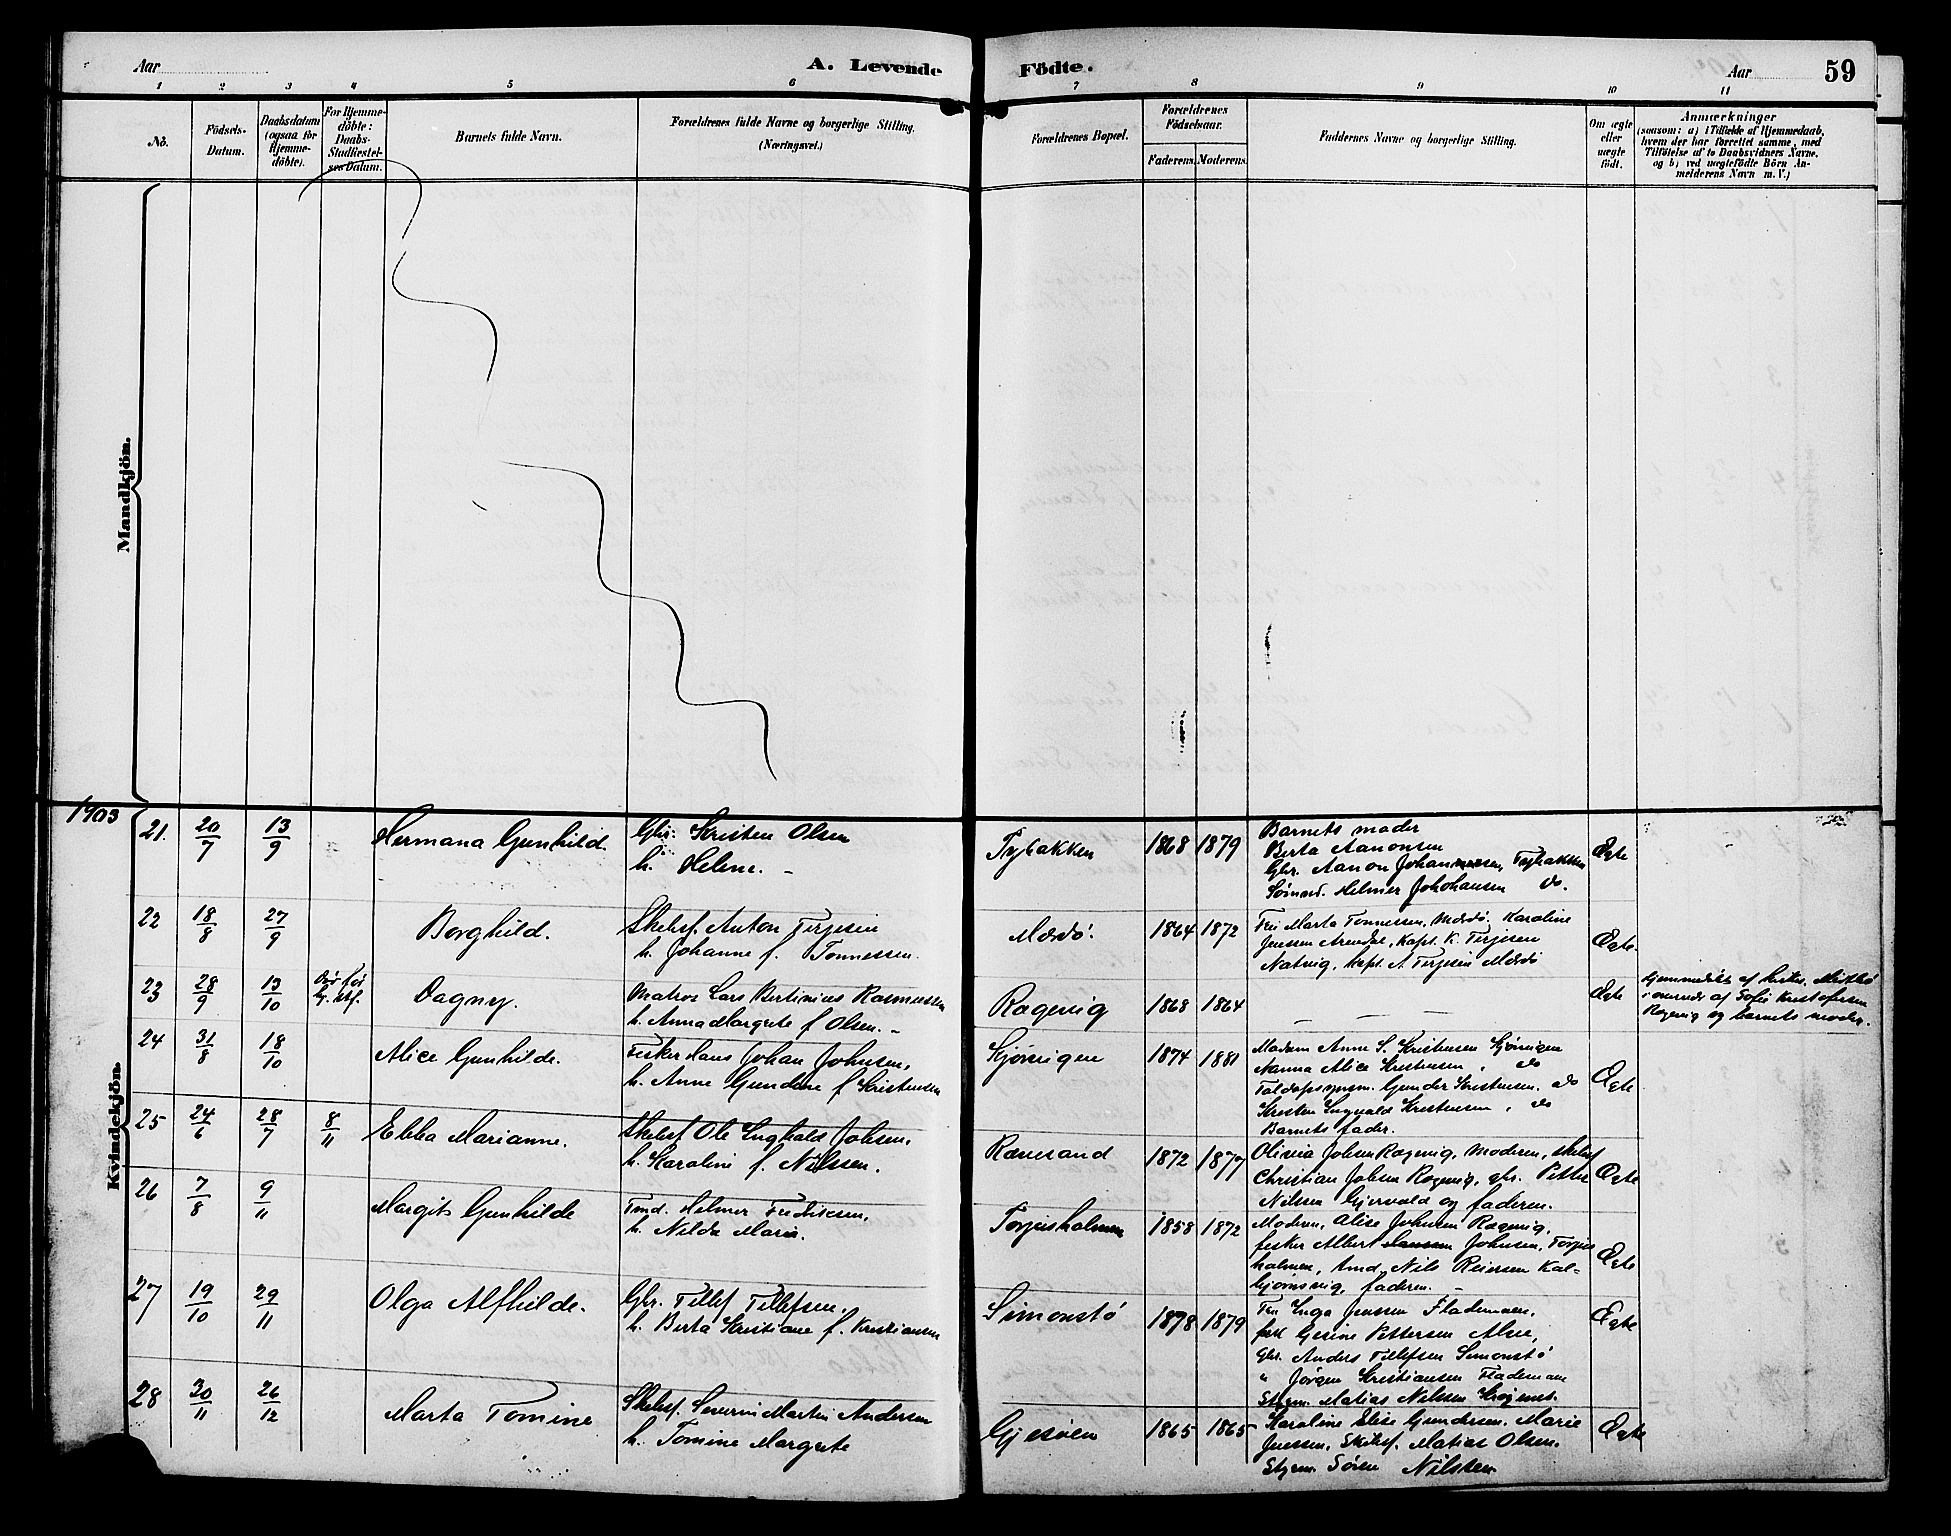 Aar
A. Levende
Födte.
Aar
59
1 2 3 4 5 6 7 8 9 10 11
No.
Födsels-
Datum.
Daabsdatum
(ogsaa för
Hjemme-
döbte).
For Hjemme-
döbte:
Daabs-
Stadfæstel-
ses Datum.
Barnets fulde Navn.
Forældrenes fulde Navne og borgerlige Stilling.
(Næringsvei.)
Forældrenes Bopæl.
Forældrenes
Födselsaar.
Faderens. Moderens.
Faddernes Navne og borgerlige Stilling.
Om ægte
eller
uægte
födt.
Anmærkninger
(saasom: a) i Tilfælde af Hjemmedaab,
hvem der har forrettet samme, med
Tilföielse af to Daabsvidners Navne,
og b) ved uægtefödte Börn An-
melderens Navn m. V.)
Mandkjön.
Kvindekjön.
1903
21. 20/7 13/9 Hermana Gunhild.
Gbr. Kristen Olsen
h. Helene. -
Tybakken 1868 1879
Barnets moder
Berta Aanonsen
Gbr. Aanon Johannesen, Tybakken
Sömd. Helmer Johohansen do.
Ægte
22 18/8 27/9 Borghild.
Skibsf. Anton Terjesen
h. Johanne f. Tonnessen.
Mærdö. 1864 1872
Fru Marta Tonnessen, Mærdö. Karoline
Jenssen Arendal, Kapt. K. Terjesen
Natvig, kapt. A Terjesen Mærdö
Ægte.
23 28/9 13/10 Dagny.
Matros Lars Bertinius Rasmussen
h. Anna Margrete f Olsen. -
Ragevig 1868 1864 — — —
Ægte
Hjemmedöbt af
af Sofie Kristofersen
Ragevig og barnets moder.
24 31/8 18/10 Alice Gunhilde.
Fisker Hans Johan Johnsen,
h. Anne Gundine f Kristensen
Gjömigen 1874 1881
Madam Anne S. Kristensen Gjömigen
Nanna Alice Kristensen, do
Toldopsynsm. Gunder Kristensen, do
Kristen Ingvald Kristensen, do
Barnets fader.
Ægte
25 24/6 28/7 8/11 Ebba Marianne.
Skibsf Ole Ingvald Johsen,
h. Karoline f. Nilssen.
Rævesand 1872 1877
Olivia Johsen Ragevig, Moderen, skibsf
Christian Johsen Ragevig, gbr. Petter
Nilssen Gjervold og faderen.
Ægte
26 7/8 9/11 Margit Gunhilde
Tmd. Helmer Fredriksen,
h. Nilda Marie.
Torjusholmen 1858 1872
Moderen, Alise Johnsen Ragevig,
fisker Albert Johnsen, Torjus
holmen, tmd. Nils Reiersen Kal-
bjørnsvig, faderen. -
Ægte
27 19/10 29/11 Olga Alfhilde.
Gbr. Tellef Tellefsen,
h. Berta Kristiane f. Kristiansen
Simonstö 1878 1879
Fru Inga Jenssen Flademoen,
frk Gesine Pettersen Alve,
Gbr. Anders Tellefsen Simonstö
" Jörgen Kristiansen Flademoen
Styrm. Matias Nilssen
Ægte
28 30/11 26/12 Marta Tomine
Skibsf. Severin Martin Andersen
h. Tomine Margrete
Gjesöen 1865 1865
Karoline Elise Gundersen, Marie
Jenssen, Skibsf. Matias Olsen.
Styrm. Sören Nilsten
Ægte